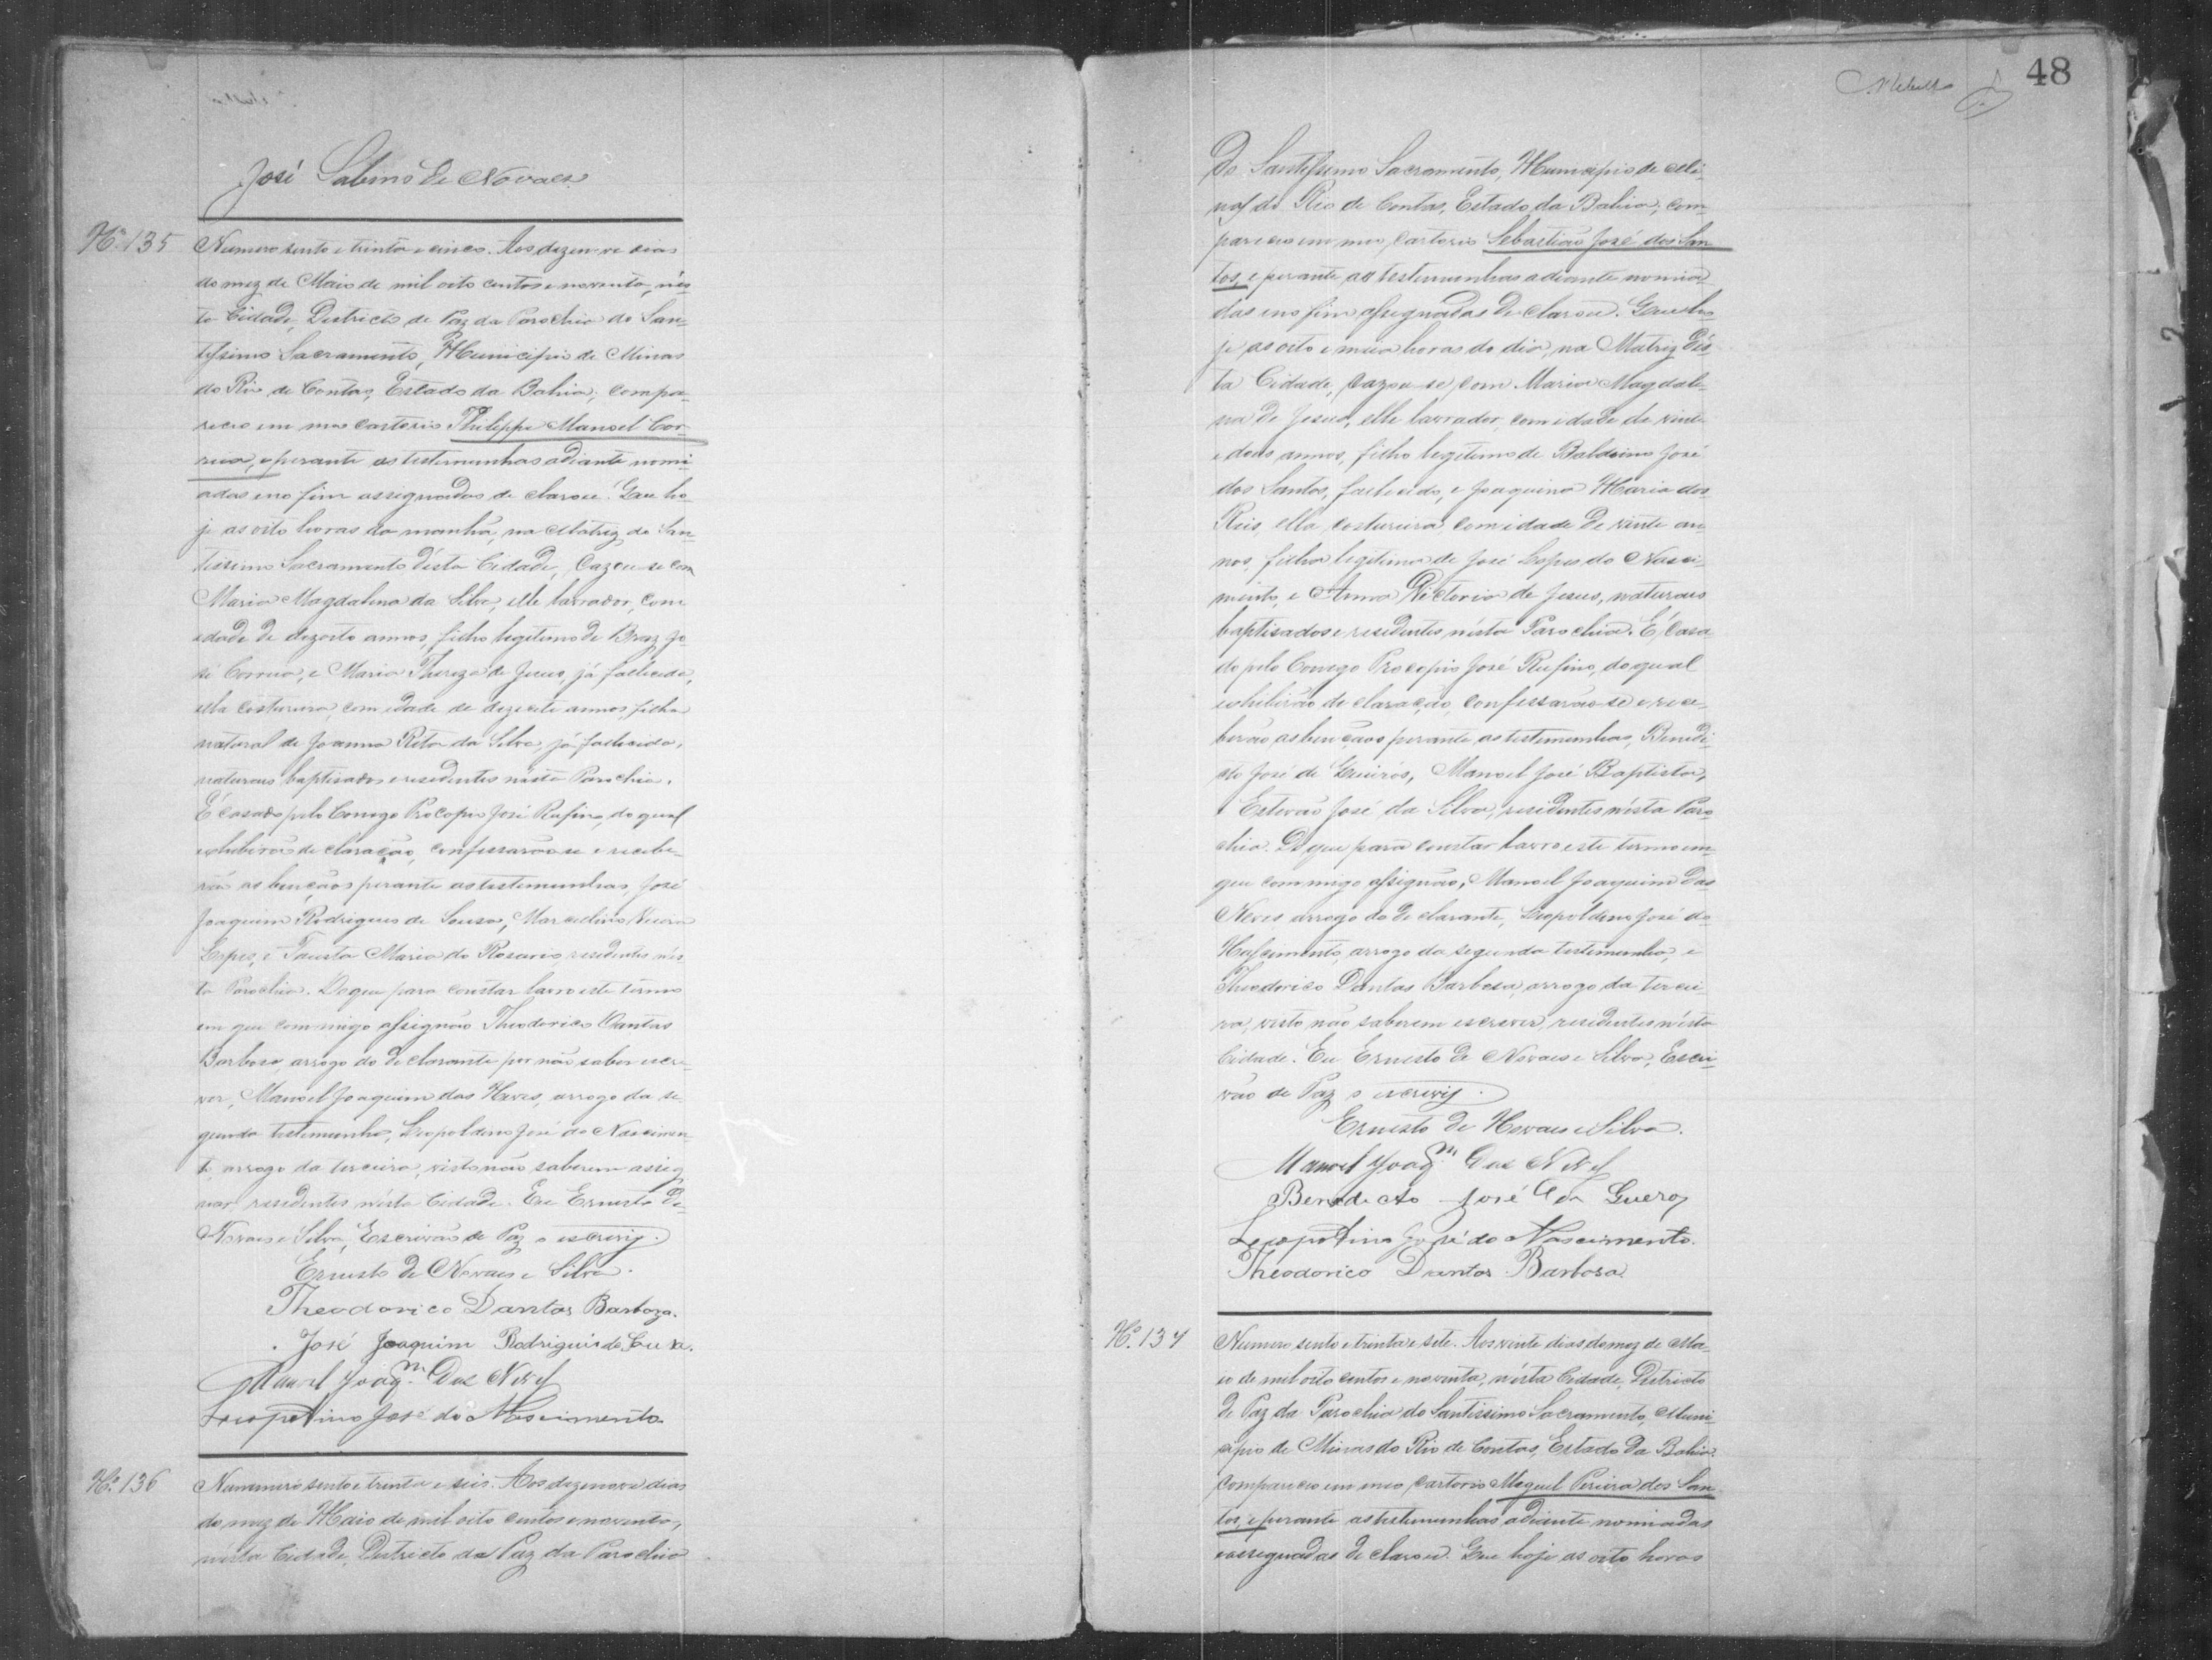 José Sabino de Novaes
Nº 135
Numero sento e trinta e cinco. Aos dezenove dias
do mez de Maio de mil oito centos e noventa, nés
ta Cidade, Districto de Paz da Parochia do San
tissimo Sacramento, Municipio de Minas
do Rio de Contas, Estado da Bahia; compa
receo em meo Cartorio Philippe Manoel Cor
reia, e perante as testemunhas adiante nomi
adas e no fim assignadas declarou: Que ho
je as oito horas da manhã, na Matriz do San
tissimo Sacramento désta Cidade, Cazou-se com
Maria Magdalena da Silva, elle lavrador, com
idade de dezoito annos, filho legitimo de Braz Jo
sé Correia, e Maria Thereza de Jesus, já fallecida,
ella costureira, com idade de dezesete annos, filha
natural de Joanna Rita da Silva, já fallecida,
naturaes baptisados e residentes nésta Parochia.
É casado pelo Conego Procopio José Rufino, do qual
exhibirão declaração, confessarão-se e recebe
rão as bençãos perante as testemunhas, José
Joaquim Rodrigues de Sousa, Marcelino Vieira
Lopes, e Fausta Maria do Rosario, residentes nés
ta Parochia. Do que para constar lavro este termo
em que commigo assignão Theodorico Dantas
Barbosa, arrogo do declarante por não saber escre
ver, Manoel Joaquim das Neves, arrogo da se
gunda testemunha, Leopoldino José do Nascimen
to, arrogo da terceira, visto não saberem assig
nar, residentes nésta Cidade. Eu Ernesto de
Novaes e Silva, Escrivão de Paz o escrevij.
Ernesto de Novaes e Silva.
Theodorico Dantas Barboza.
José Joaquim Rodrigues de
Manoel Joaqm. das Neves
Leopoldino José do Nascimento
Nº 136
Nummero sento e trinta e seis. Aos dezenove dias
do mez de Maio de mil oito centos e noventa,
nésta Cidade, Districto da Paz da Parochia
48
Do Santissimo Sacramento, Municipio de Mi
nas do Rio de Contas, Estado da Bahia, com
pareceo em meo Cartorio Sebastião José dos San
tos, e perante as testemunhas adiante nomia
das e no fim assignadas declarou. Que ho
je as oito e meia horas do dia, na Matriz dés
ta Cidade, Cazou-se com Maria Magdale
na de Jesus, elle lavrador, com idade de vinte
e dois annos, filho legitimo de Baldoino José
dos Santos, fallecido, e Joaquina Maria dos
Reis, ella costureira, com idade de vinte an
nos, filha legitima de José Lopes do Nasci
mento, e Anna Victoria de Jesus, naturaes
baptisados e residentes nésta Parochia. É Casa
do pelo Conego Procopio José Rufino, do qual
exhibirão declaração, confessarão-se e rece
berão as bençãos perante as testemunhas, Benedi
cto José de Queirós, Manoel José Baptista,
e Estevão José da Silva, residentes nésta Paro
chia. Do que para constar lavro este termo em
que commigo assignão, Manoel Joaquim das
Neves arrogo do declarante, Leopoldino José do
Nascimento, arrogo da segunda testemunha, e
Theodorico Dantas Barbosa, arrogo da tercei
ra, visto não saberem escrever, residentes nésta
Cidade. Eu Ernesto de Novaes e Silva, Escri
vão de Paz o escrevij.
Ernesto de Novaes e Silva.
Manoel Joaqm. das Neves
Benedicto José de Queros
Leopoldino José do Nascimento.
Theodorico Dantas Barbosa.
Nº 137
Numero sento e trinta e sete. Aos vinte dias do mez de Ma
io de mil oito centos e noventa, nésta Cidade, Districto
de Paz da Parochia do Santissimo Sacramento, Muni
cipio de Minas do Rio de Contas, Estado da Bahia.
compareceo em meo Cartorio Miguel Pereira dos San
tos, e perante as testemunhas adiante nomiadas
e assignadas declarou. Que hoje as oito horas